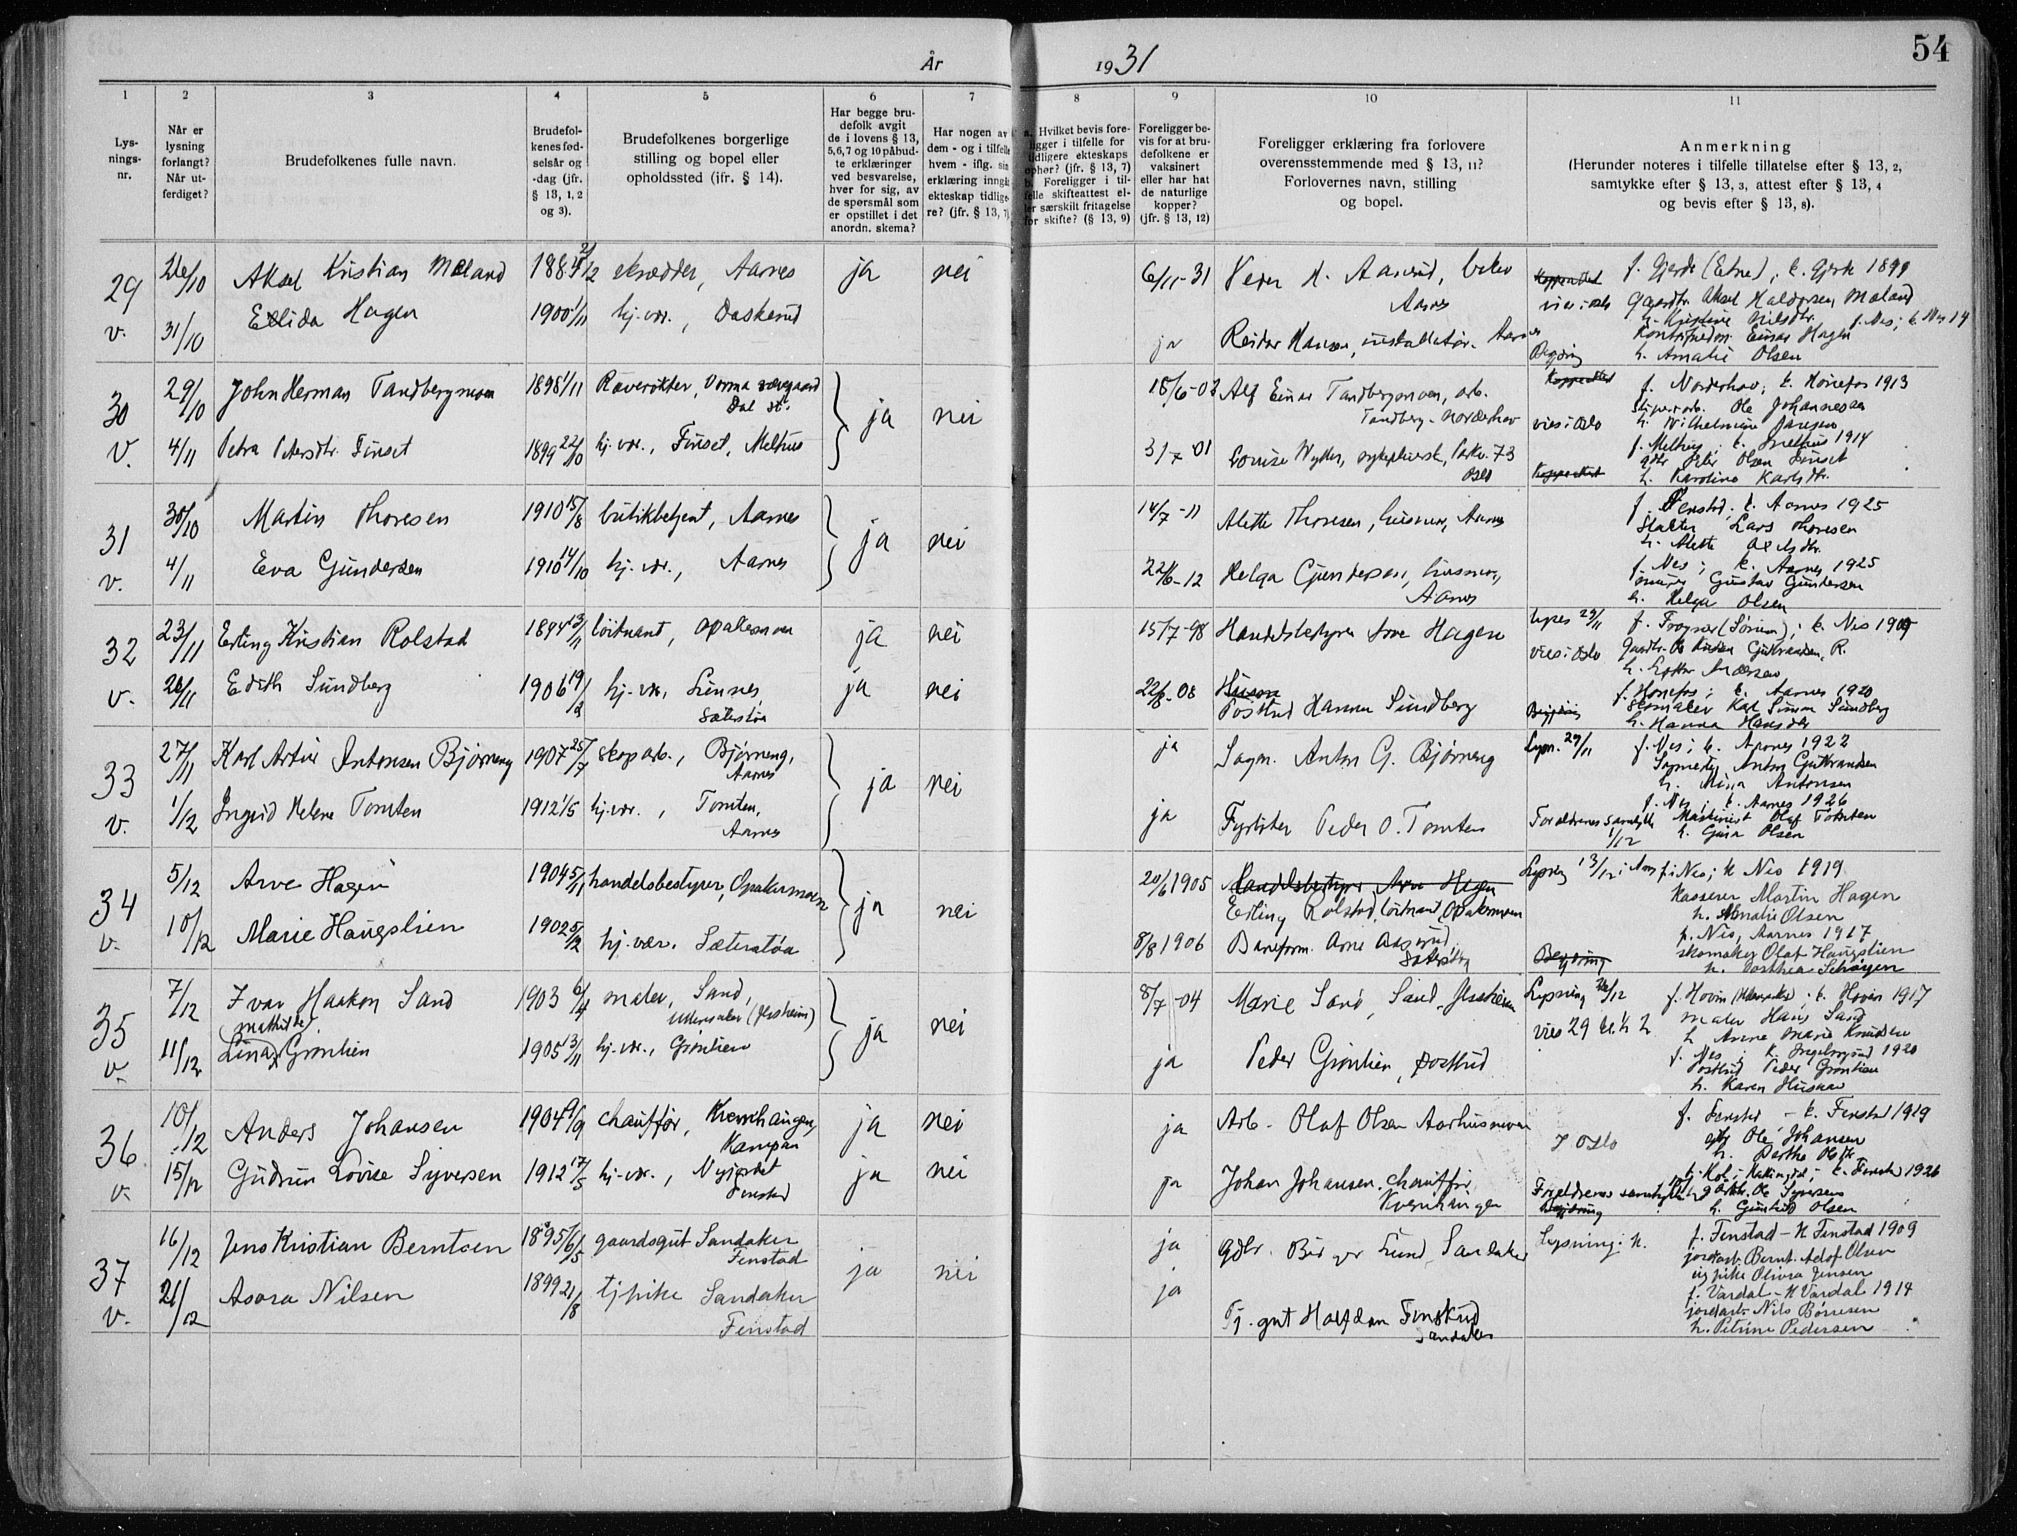 År 1931
54
1
2
3
4
5
6
7
8
9
10
11
Lys-
nings-
nr.
Når er
lysning
forlangt?
Når ut-
ferdiget?
Brudefolkenes fulle navn.
Brudefol-
kenes fød-
selsår og
-dag (jfr.
§ 13, 1, 2
og 3).
Brudefolkenes borgerlige
stilling og bopel eller
opholdssted (ifr. § 14).
Har begge bru-
defolk avgit
de i lovens § 13,
5,6,7 og 10 påbud-
te erklæringer
ved besvarelse,
hver for sig, av
de spørsmål som
er opstillet i det
anordn. skema?
Har nogen av
dem - og i tilfelle
hvem - iflg. sin
erklæring inngå
ekteskap tidlige-
re? (jfr. § 13, 7)
a. Hvilket bevis fore-
ligger i tilfelle for
tidligere ekteskaps
ophør? (jfr. § 13, 7)
b. Foreligger i til-
felle skifteattest el-
ler særskilt fritagelse
for skifte? (§ 13, 9)
Foreligger be-
vis for at bru-
defolkene er
vaksinert
eller har hat
de naturlige
kopper?
(jfr. § 13, 12)
Foreligger erklæring fra forlovere
overensstemmende med § 13, 11?
Forlovernes navn, stilling
og bopel.
Anmerkning
(Herunder noteres i tilfelle tillatelse efter § 13, 2,
samtykke efter § 13, 3, attest efter § 13, 4
og bevis efter § 13, 8).
29 26/10 Aksel Kristian Mæland skrædder, Aarnes ja nei 6/11-31 Aarnes f. Gjerde (Etne), k. Gjerde 1899
vies i Oslo Gaardbr. Aksel Haldorsen Mæland
v. 31/10 Hagen 1900 1/11 hj.vær., Daskerud ja Reidar Hansen, installatør. f. Nes; k. Nes 14
Einar Hagen
h. Amalie Olsen
30 29/10 John Herman Tandbergmoen 1898 1/11 Dal st. ja nei 18/6-03 Alf Einar Tandbergmoen, arb. f. Norderhov; k. Hønefos 1913
Tandberg - Norderhov vies i Oslo Ole Johannesen
h. Vilhelmine Jansen
V. 4/11 Petra Petersdtr. Finset 1899 22/10 hj.vær., Finset, Melhus 3/7-01 Oslo f. Melhus; k. Melhus 1914
Olsen Finset
h. Karoline Karlsdtr.
31 30/10 Martin Thoresen 1910 15/8 butikbetjent, Aarnes ja nei 14/7-11 Alette Thoresen, husmor, Aarnes f. Fenstad, k. Aarnes 1925
Lars Thoresen
h. Alette
v. 4/11 Eva Gundersen 1910 14/10 hj.vær., Aarnes 22/6-12 Helga Gundersen, husmor, f. Nes; k. Aarnes 1925
Aarnes murer Gustav Gundersen
h. Helga Olsen
32 23/11 Erling Kristian Rolstad 1894 13/11 løitnant, Opakermoen ja nei 15/7-98 Handelsbestyrer Arve Hagen lyses 29/11 f. Frogner (Sørum); k. Nes 1909
vies i Oslo
v. 28/11 Edith Sundberg 1906 19/2 hj.vær., Linnes, ja nei 22/8-08
Sæterstøa Postbud Hanna Sundberg f. Hønefos; k. Aarnes 1920
Skomaker Karl Simon Sundberg
h. Hanna Hansdtr
33 27/11 Karl Artur Antonsen Bjørneng 1907 25/7 skogarb., Bjørneng, ja nei ja Sagm. Anton G. Bjørneng Lysn. 29/11 f. Nes; k. Aarnes 1922
Aarnes Anton Gulbrandsen
h. Mina Antonsen
v. 1/12 Ingrid Helene Tomten 1912 1/5 hj.vær., Tomten, ja Fyrbøter Peder O. Tomten f. Nes; k. Aarnes 1926
Aarnes Forældrenes samtykke 1/12 Maskinist Olaf Tomten
h. Gina Olsen
34 5/12 Arve Hagen 1904 5/11 handelsbestyrer, Opakermoen ja nei 20/6 1905 Handelsbestyrer Arve Hagen Lysning 13/12 f. Nes; k. Nes 1919
Erling Rolstad, løitnant, Opakermoen Kasserer Martin Hagen
h. Amalie Olsen
v. 10/12 Marie Haugslien 1902 5/2 hj.vær. Sæterstøa 8/8 1906 Baneform. Arne Aaserud, f. Nes, Aarnes 1917
Sæterstøa Begjæring skomaker Olaf Haugslien
h. Dorthea Schøyen
35 7/12 Ivar Haakon Sand 1903 6/4 maler, Sand, ja nei 8/7-04 Marie Sand, Sand, Jessheim Lysning 20/12 f. Hovin; k. Hovin 1917
(Jessheim) vies 29 kl. ½ 2 maler Hans Sand
h. Anne Marie Knudsen
v. 11/12 (Mathilde) Lina Grønlien 1905 13/11 hj.vær., Grønlien ja Peder Grønlien, postbud f. Nes; k. Ingeborgrud 1920
Postbud Peder Grønlien
h. Karen
36 10/12 Anders Johansen 1904 9/9 chauffør, Kvernhaugen, ja nei ja Arb. Olaf Olsen Aarhusmoen f. Fenstad - k. Fenstad 1919
Kampaa I Oslo Ole Johansen
v. 15/12 Gudrun Lovise Syversen 1912 17/5 hj.vær., Nyjordet ja nei ja Johan Johansen, chauffør k. Fenstad 1926
Fenstad Kvernhaugen Forældrenes samtykke Ole Syversen
Begjæring h. Gunhild Olsen
37 16/12 Jens Kristian Berntsen 1895 6/5 gaardsgut Sandaker ja nei ja Gdbr. Birger Lund, Sandaker Lysning: N. f. Fenstad - K Fenstad 1909
Fenstad jordarb. Bernt Adolf Olsen
ug pike Olivia Jensen
v. 21/12 Asora Nilsen 1899 21/8 tj pike Sandaker ja f. Vardal - K Vardal 1914
Fenstad Tj. gut Halfdan Finskud jordarb. Nils Børresen
Sandaker h. Petrine Pedersen